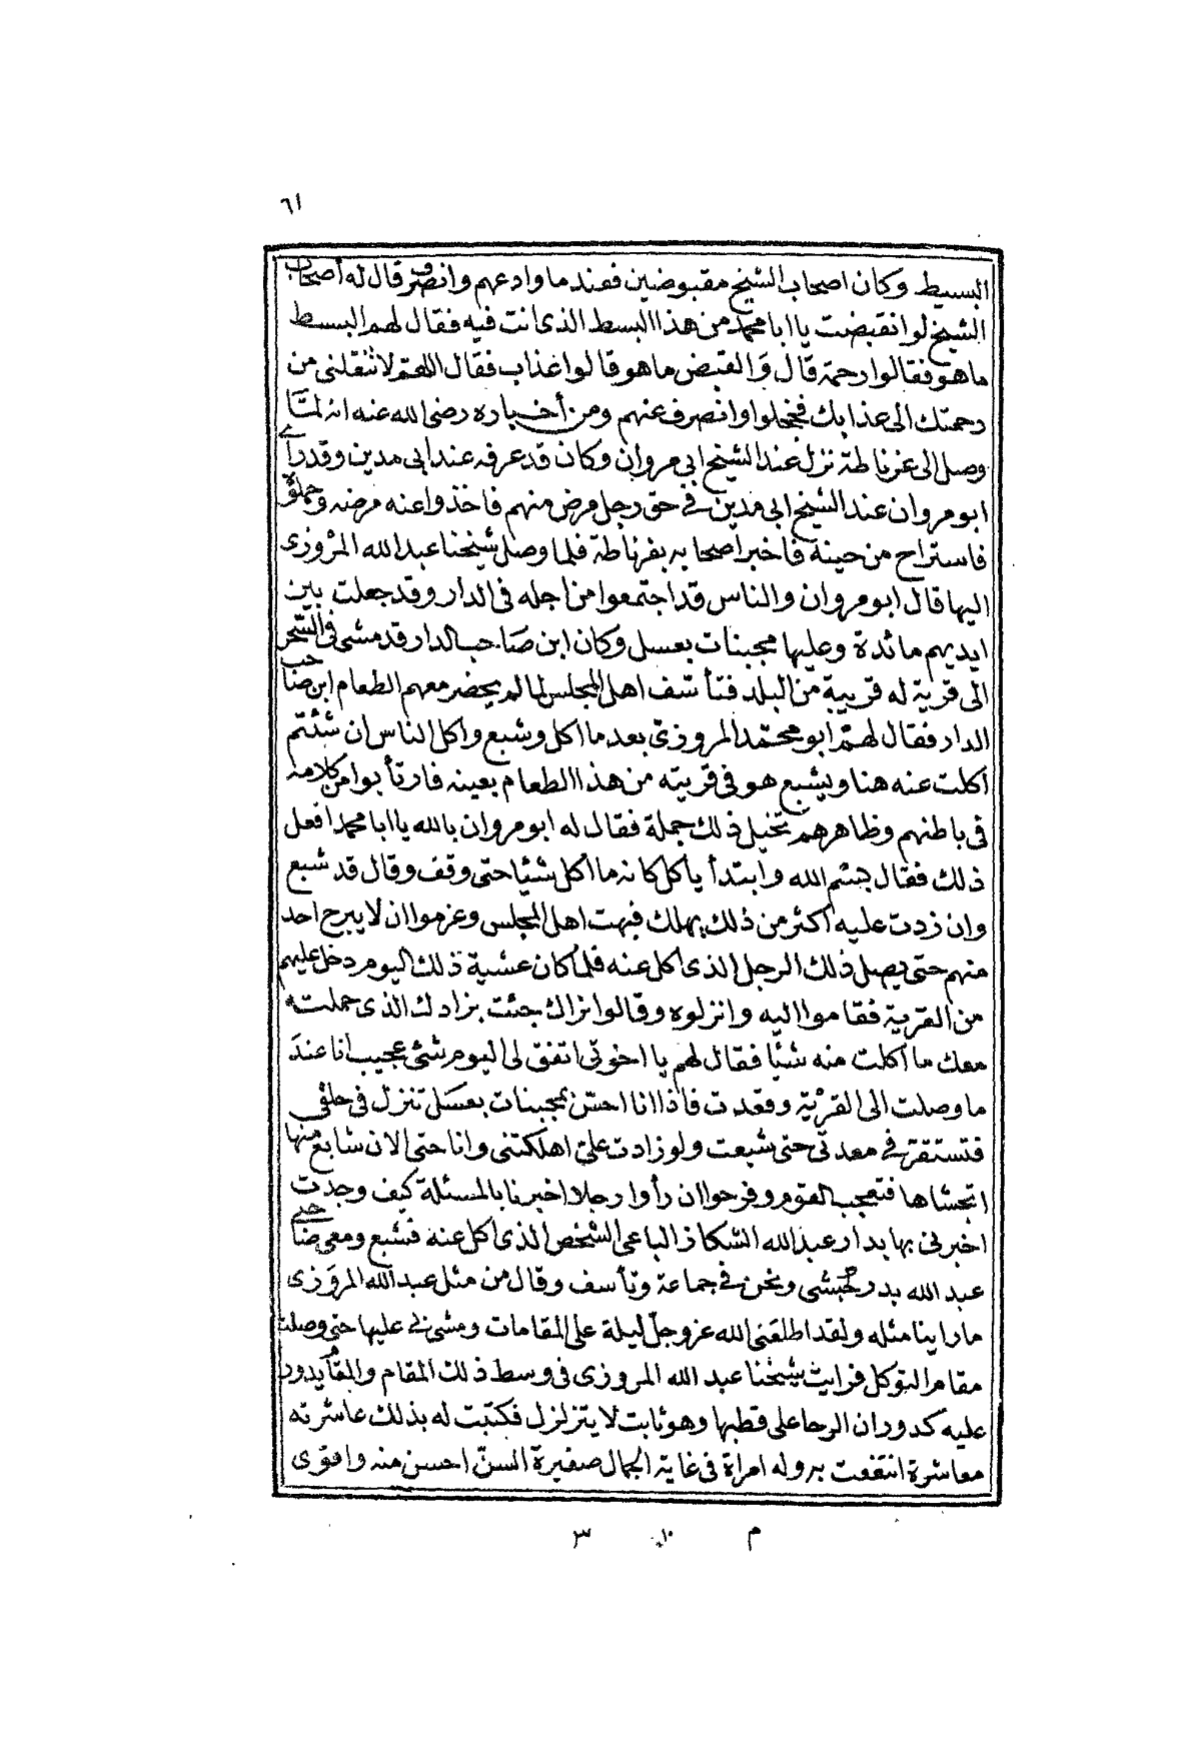 ٦١
البسيط وكان اصحاب الشيخ مقبوضين فعند ما وادعهم وانصرف قال له أصحاب
الشيخ لو انقبضت يا ابا محمد من هذا البسط الذى انت فيه فقال لهم البسط
ما هو فقالوا رحمة قال وَالقبض ما هو قالوا عذاب فقال اللهم لا تنقلنى من
رحمتك الى عذابك فخجلوا وانصرف عنهم ومن أخباره رضى الله عنه انه لمّا
وصل الى غرناطة نزل عند الشيخ ابى مروان وكان قد عرفه عند ابى مدين وقد رأى
ابو مروان عند الشيخ ابى مدين فى حق رجل مرض منهم فاخذوا عنه مرضه وحملوه
فاستراح من حينه فاخبر اصحابه بغرناطة فلما وصل شيخنا عبد الله المرْوزى
اليها قال ابو مروان والناس قد اجتمعوا من اجله فى الدار وقد جعلت بين
ايديهم مائدة وعليها مجبنات بعسل وكان ابن صَاحب الدار قد مشى فى السّحر
الى قرية له قريبة من البلد فتأسف اهل المجلس لما لم يحضر معهم الطعام ابن صَاحب
الدار فقال لهم ابو محمّد المروزى بعد ما اكل وشبع واكل الناس ان شئتم
اكلت عنه هنا ويشبع هو فى قريته من هذا الطعام بعينه فارتأبوا من كلامه
فى باطنهم وظاهرهم تخيل ذلك جملة فقال له ابو مروان بالله يا ابا محمد افعل
ذلك فقال بسْم الله وابتدأ ياكل كانه ما أكل شيْئا حتى وقف وقال قد شبع
وان زدت عليه أكثر من ذلك يهلك فبهت اهل المجلس وعزموا ان لا يبرح احد
منهم حتى يصل ذلك الرجل الذى اكل عنه فلما كان عشية ذلك اليوم دخل عليهم
من القرية فقاموا اليه وانزلوه وقالوا نراك جئت بزادك الذى حملته
معك ما أكلت منه شيْئا فقال لهم يا اخوتى اتفق لى اليوم شئ عجيب انا عند
ما وصلت الى القرْية وقعدت فاذا انا احسّ بمجبنات بعسَل تنزل فى حلقى
فتستقرّ فى معدتى حتى شبعت ولو زادت علىّ اهلكتنى وانا حتى الان شابع منها
اتجشاها فتعجب القوم وفرحوا ان رأوا رجلا اخبرنا بالمسئلة كيف وجدت
اخبرنى بها بدار عبد الله الشكاز الباعى الشخص الذى اكل عنه فشبع ومعى صَاحبى
عبد الله بدر حبشى ونحن فى جماعة وتأسف وقال من مثل عبد الله المروَزى
ما راينا مثله ولقد اطلعنى الله عز وجلّ ليلة على المقامات ومشى بى عليها حتى وصلت
مقام التوكل فرايت شيْخنا عبد الله المروزى فى وسط ذلك المقام والمقام يدور
عليه كدوران الرحا على قطبها وهو ثابت لا يتزلزل فكتبت له بذلك عاشرته
معاشرة انتفعت به وله امراة فى غاية الجمال صغيرة السنّ احسن منه واقوى
م ١٠ ٣